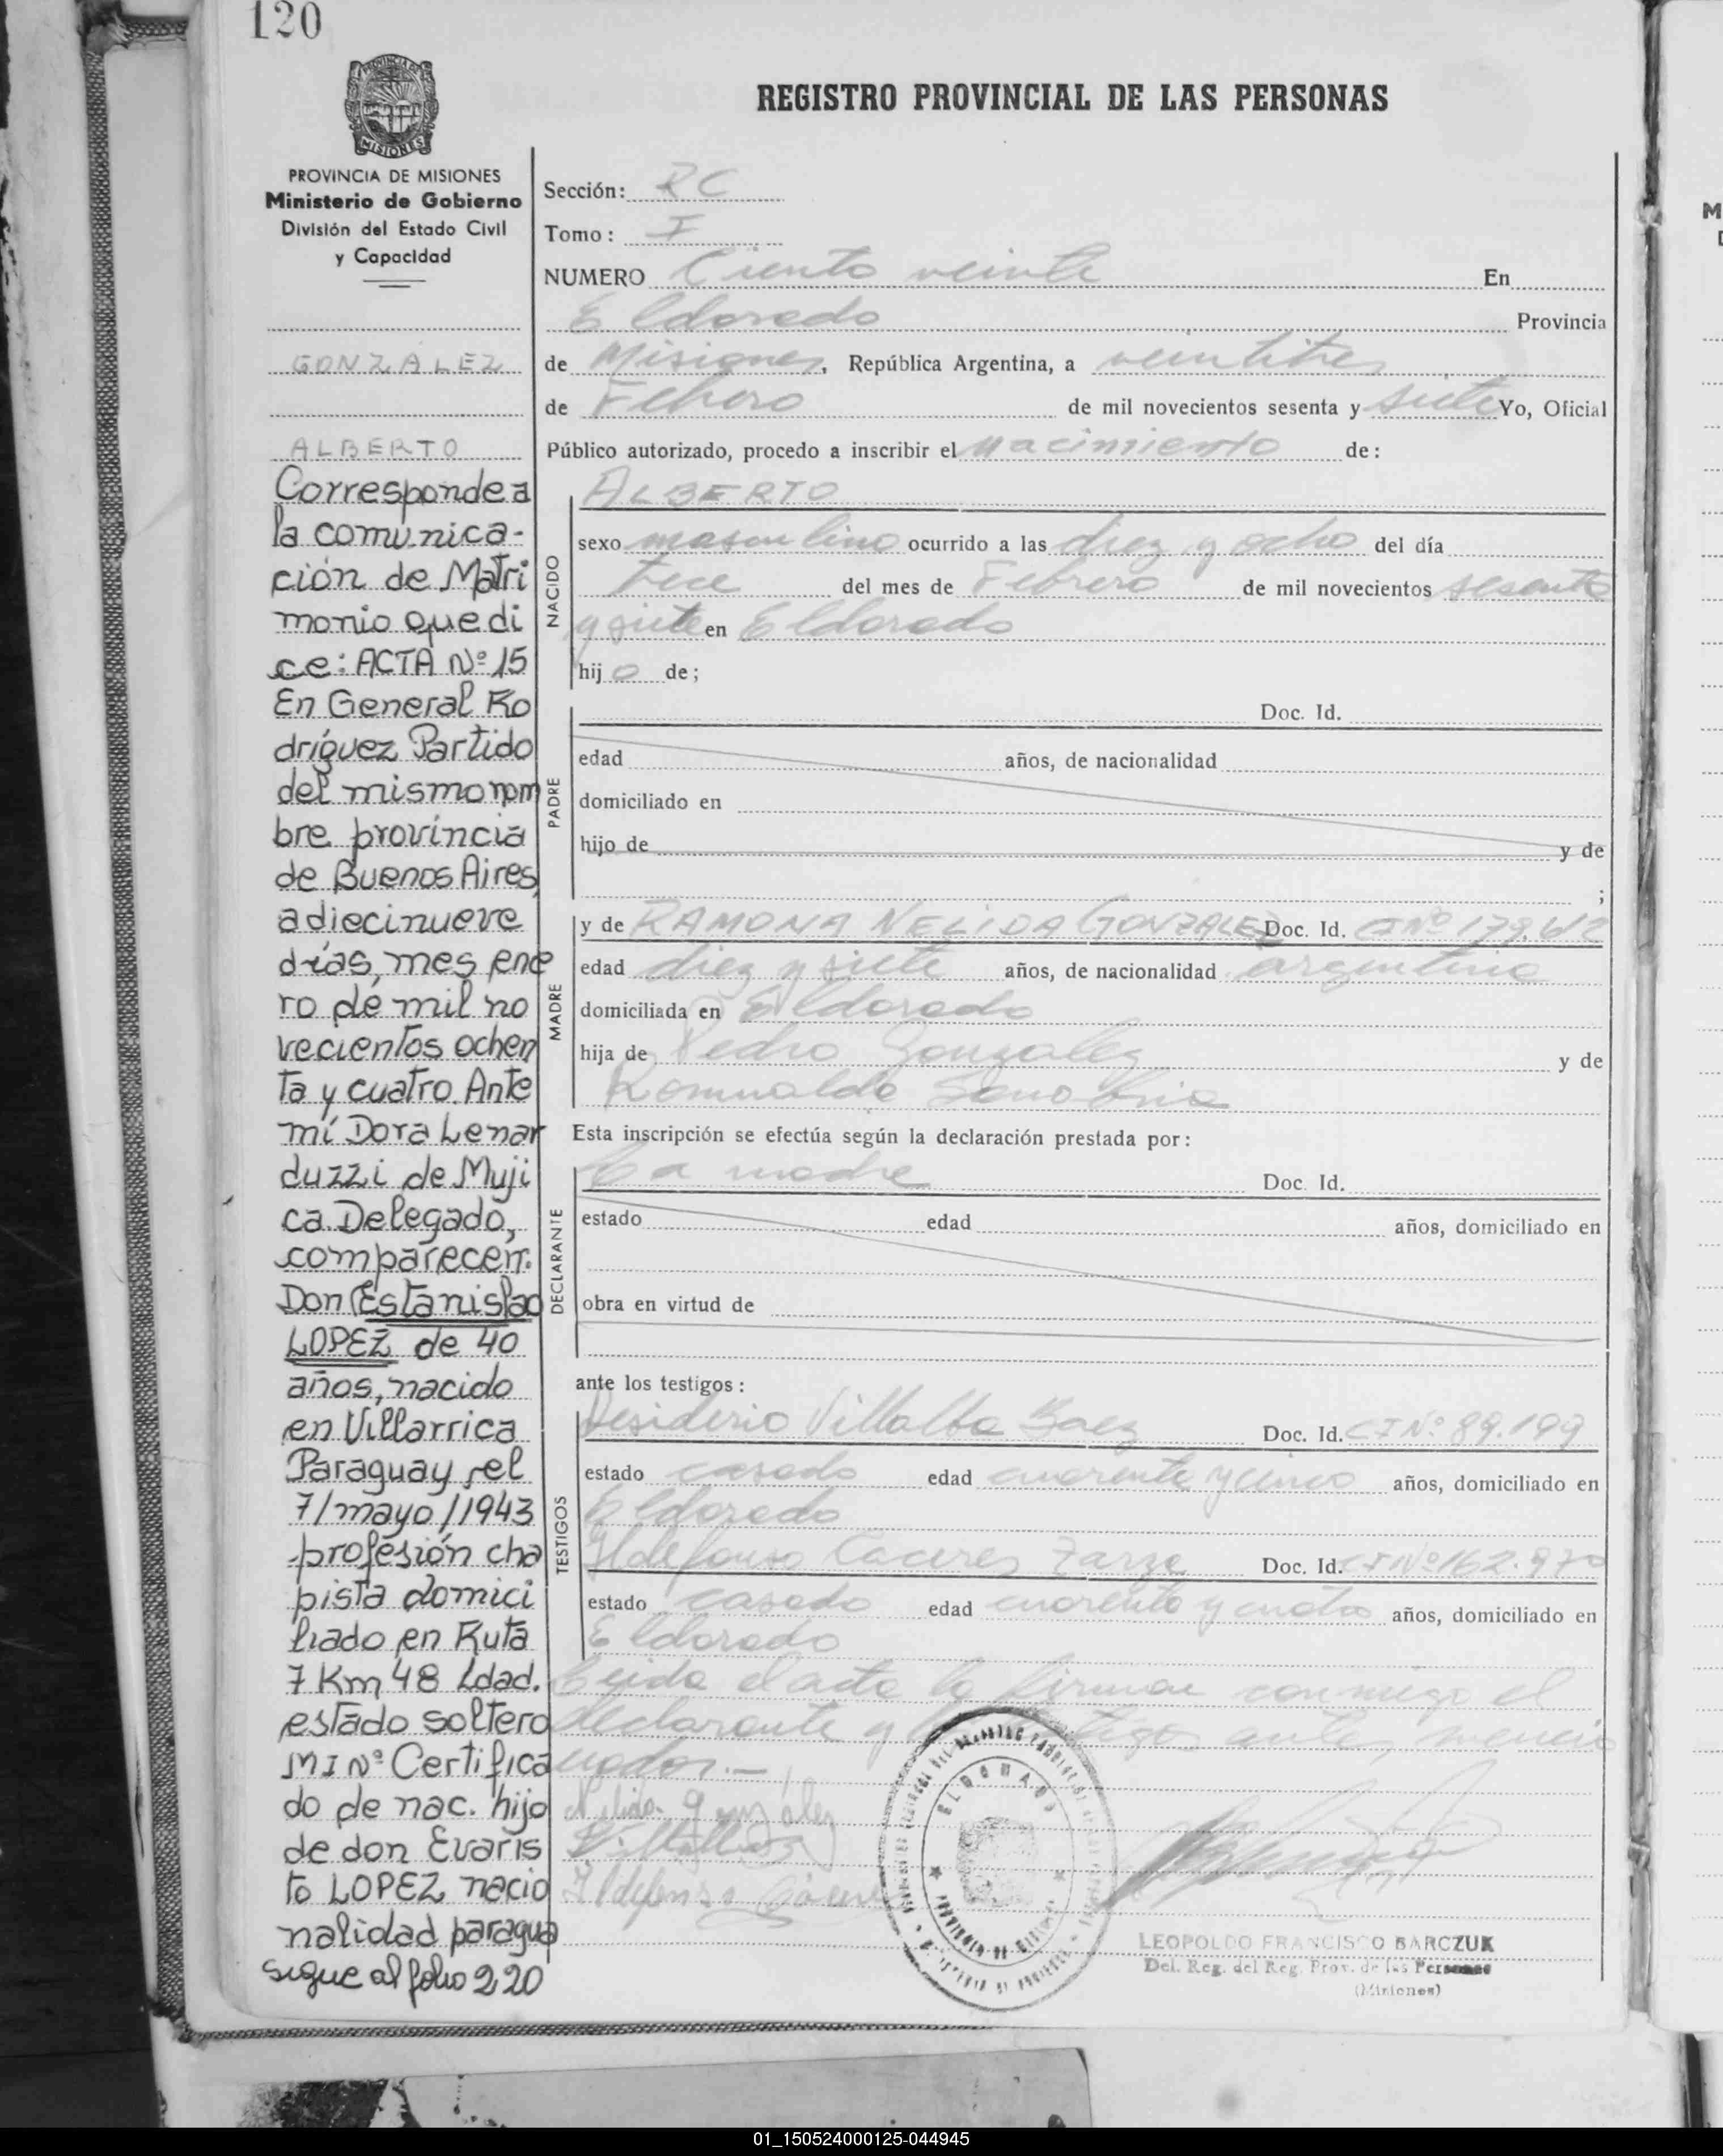 120
REGISTRO PROVINCIAL DE LAS PERSONAS
MISIONES
PROVINCIA DE MISIONES
Ministerio de Gobierno
División del Estado Civil
y Capacidad
GONZÁLEZ
ALBERTO
Corresponde a
la comunica-
ción de Matri
monio que di
ce: ACTA Nº 15
En General Ro
dríguez Partido
del mismo nom
bre provincia
de Buenos Aires,
a diecinueve
días, mes ene
ro de mil no
vecientos ochen
ta y cuatro. Ante
mí Dora Lenar
duzzi de Muji
ca Delegado,
comparecen:
Don Estanislao
LOPEZ de 40
años, nacido
en Villarrica
Paraguay, el
7/mayo/1943
profesión cha
pista domici
liado en Ruta
7 Km 48 Ldad.
estado soltero
MI Nº Certifica
do de nac. hijo
de don Evaris
to LOPEZ nacio
nalidad paragua
sigue al folio 220
Sección: RC
Tomo: I
NUMERO Ciento veinte En
Eldorado Provincia
de Misiones, República Argentina, a veintitres
de Febrero de mil novecientos sesenta y siete Yo, Oficial
Público autorizado, procedo a inscribir el nacimiento de:
NACIDO
ALBERTO
sexo masculino ocurrido a las diez y ocho del día
trece del mes de Febrero de mil novecientos sesenta
y siete en Eldorado
hij o de;
PADRE
Doc. Id.
edad años, de nacionalidad
domiciliado en
hijo de y de
;
MADRE
y de RAMONA NELIDA GONZALEZ Doc. Id. CI Nº
edad diez y siete años, de nacionalidad argentina
domiciliada en Eldorado
hija de Pedro Gonzalez y de
Romualda
Esta inscripción se efectúa según la declaración prestada por:
DECLARANTE
La madre Doc. Id.
estado edad años, domiciliado en
obra en virtud de
ante los testigos:
TESTIGOS
Desiderio Villalba Baez Doc. Id. CI Nº 89.199
estado casado edad cuarenta y cinco años, domiciliado en
Eldorado
Ildefonso Caceres Zarza Doc. Id. CI Nº 162.970
estado casado edad cuarenta y cuatro años, domiciliado en
Eldorado
Leida el acta la firman conmigo el
declarante y testigos antes mencio
nados.—
Nelida González
Villalba
Ildefonso Cáceres
ELDORADO
PROVINCIA DE MISIONES
LEOPOLDO FRANCISCO BARCZUK
Del. Reg. del Reg. Prov. de las Personas
(Misiones)
01_150524000125-044945